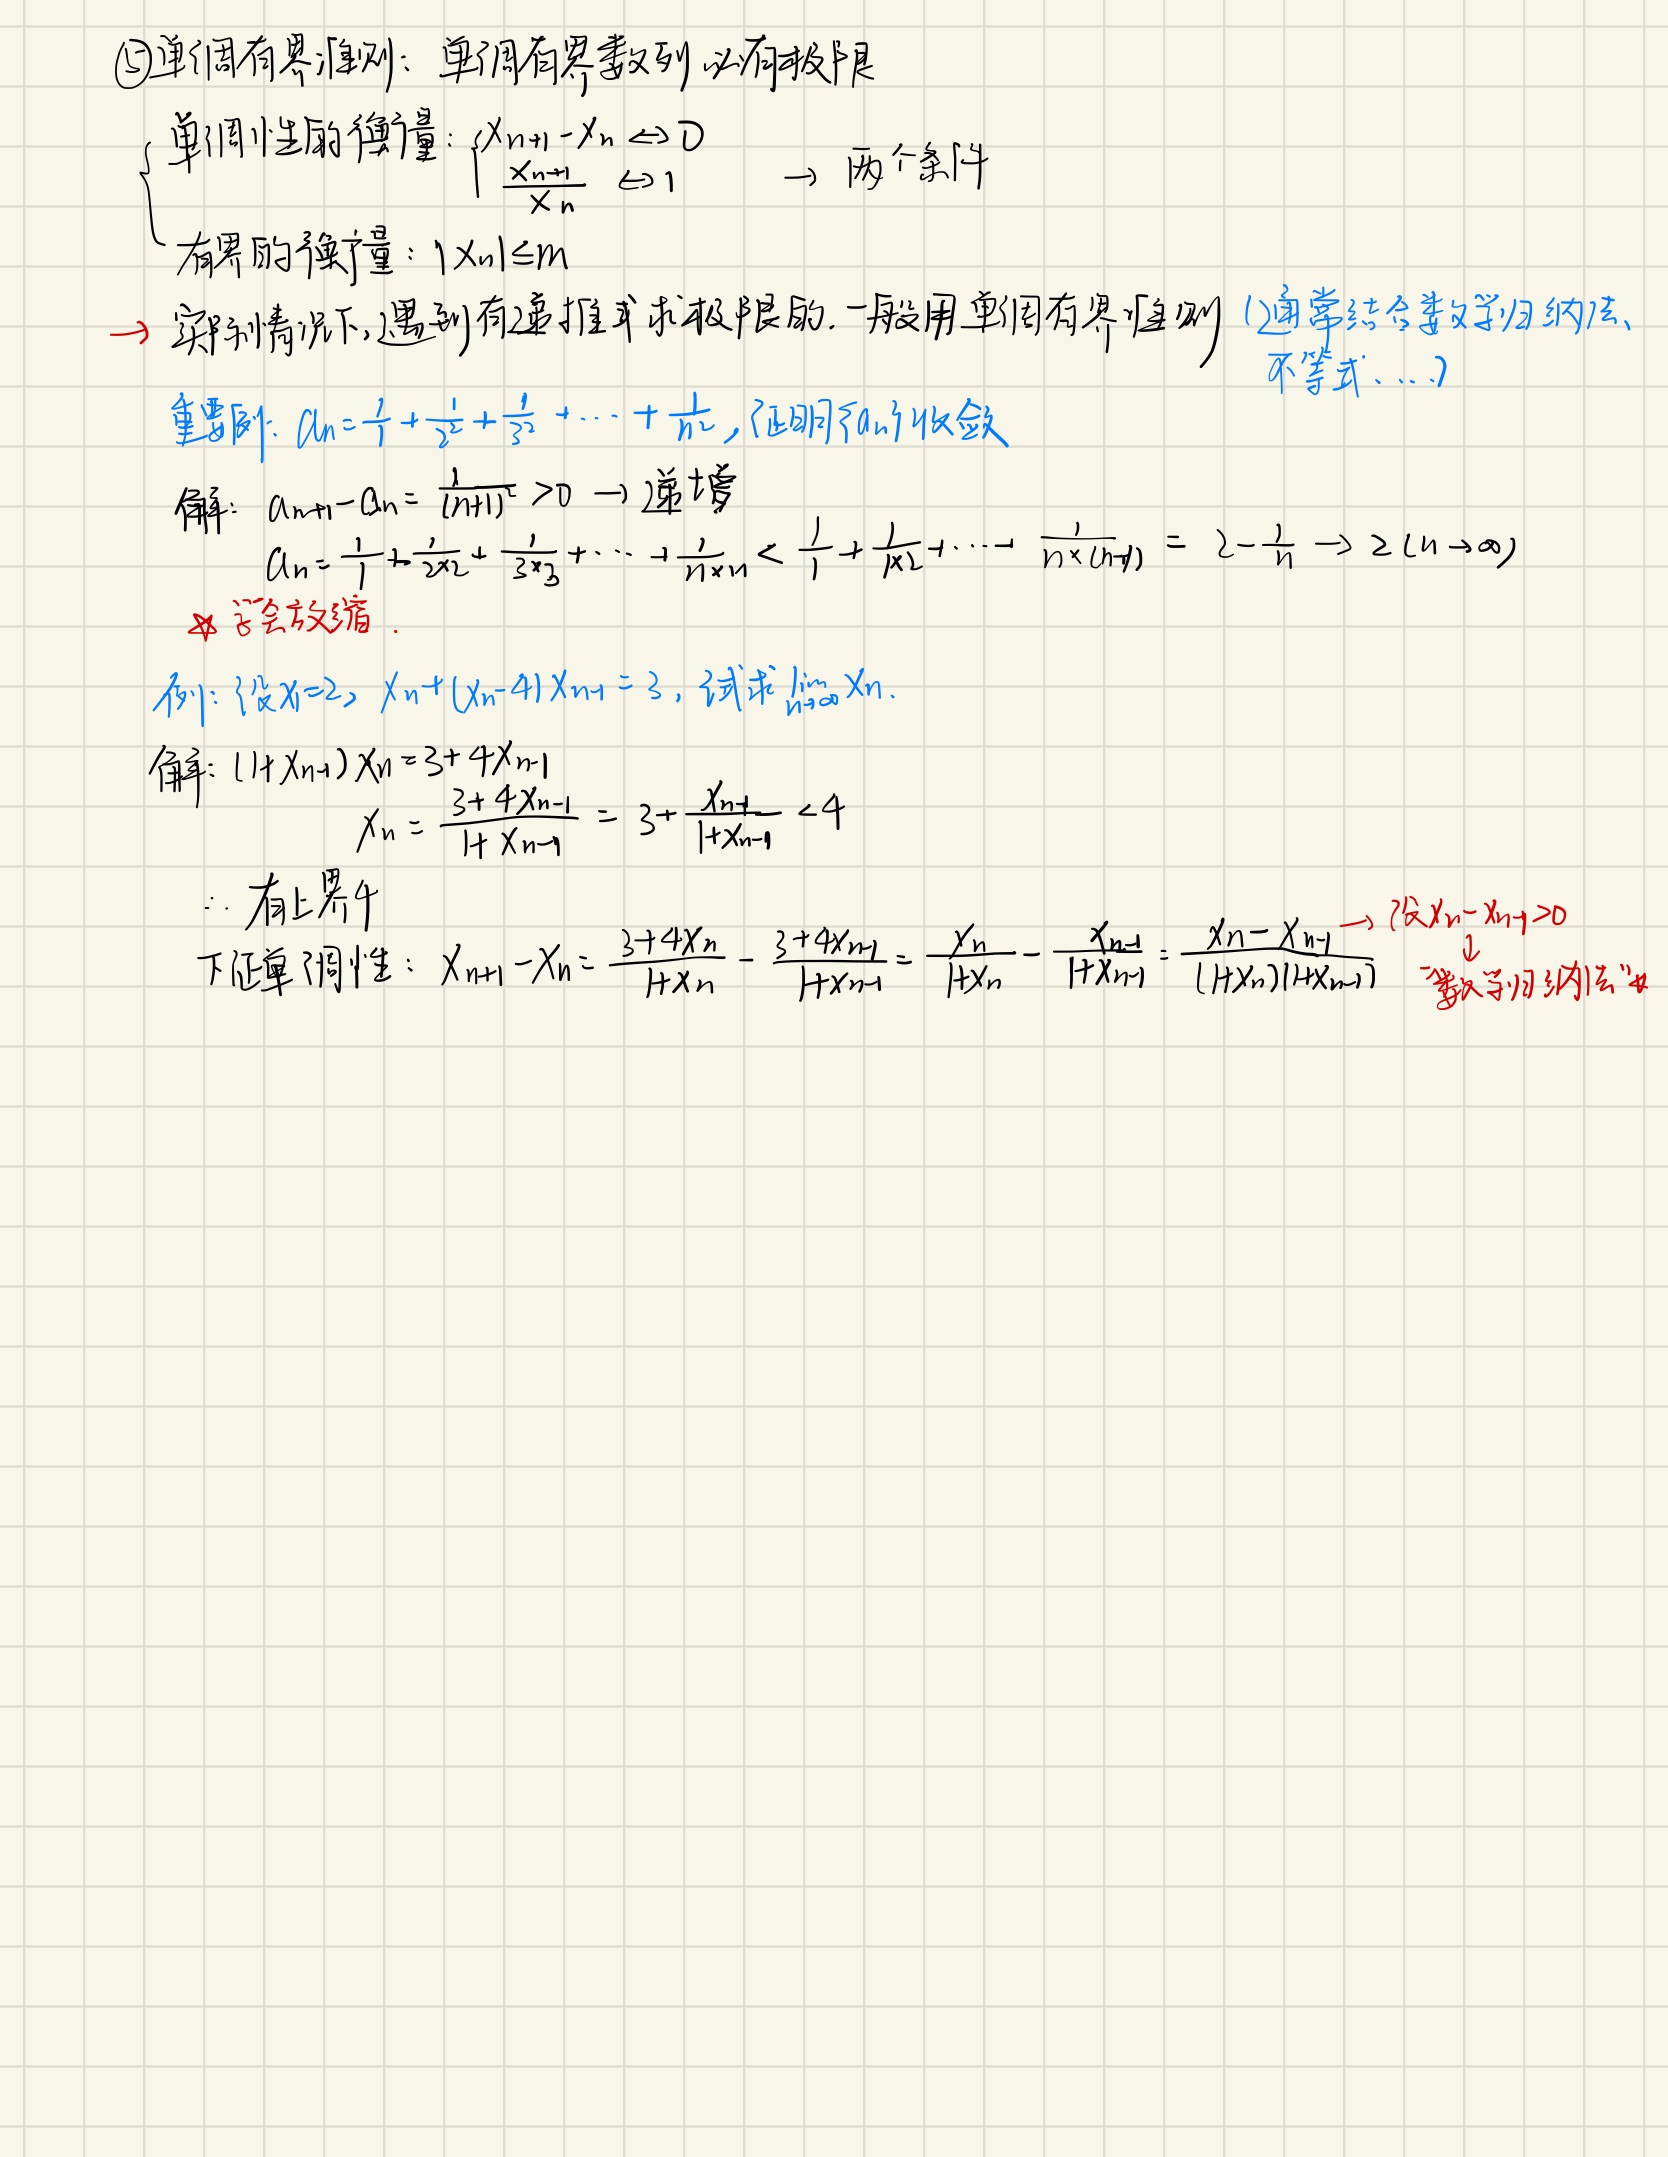 ⑤单调有界准则：单调有界数列必有极限
单调性的衡量：{ xₙ₊₁ - xₙ <=> 0
xₙ₊₁/xₙ <=> 1 → 两个条件
有界的衡量：|xₙ| ≤ m
→ 实际情况下，遇到有递推式求极限的，一般用单调有界准则（通常结合数学归纳法、
不等式....）
重要例：aₙ = 1/1 + 1/2² + 1/3² + ... + 1/n²，证明{aₙ}收敛
解：aₙ₊₁ - aₙ = 1/(n+1)² > 0 → 递增
aₙ = 1/1 + 1/(2×2) + 1/(3×3) + ... + 1/(n×n) < 1/1 + 1/(1×2) + ... + 1/(n×(n-1)) = 2 - 1/n → 2 (n→∞)
☆ 学会放缩.
例：设x₁=2, xₙ+(xₙ-4)xₙ₋₁=3, 试求 lim n→∞ xₙ.
解：(1+xₙ₋₁)xₙ = 3+4xₙ₋₁
xₙ = (3+4xₙ₋₁)/(1+xₙ₋₁) = 3 + xₙ₋₁/(1+xₙ₋₁) < 4
∴ 有上界4
下证单调性：xₙ₊₁ - xₙ = (3+4xₙ)/(1+xₙ) - (3+4xₙ₋₁)/(1+xₙ₋₁) = xₙ/(1+xₙ) - xₙ₋₁/(1+xₙ₋₁) = (xₙ - xₙ₋₁)/((1+xₙ)(1+xₙ₋₁)) → 设xₙ - xₙ₋₁>0
↓
"数学归纳法"☆